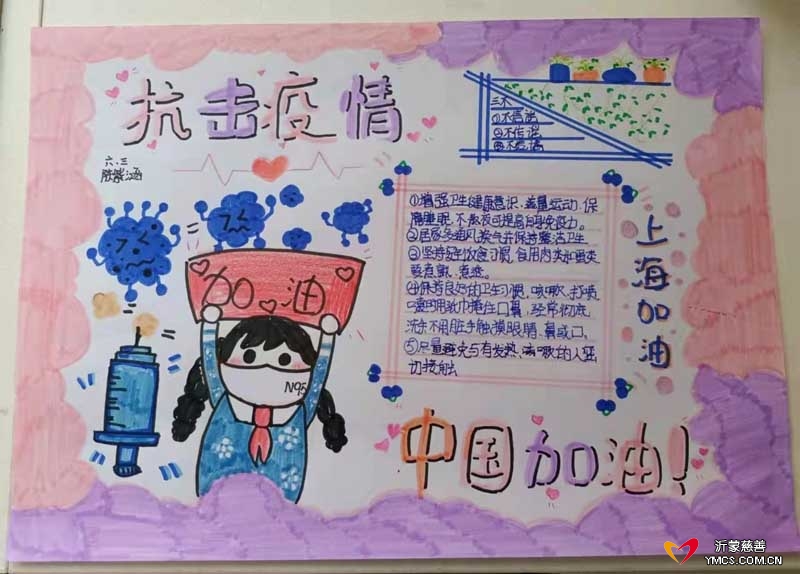 抗击疫情
六.三
三不
①不信谣
②不传谣
③不造谣
①增强卫生健康意识、适量运动、保
障睡眠、不熬夜可提高自身免疫力。
②居家多通风换气并保持整洁卫生
③坚持良好饮食习惯,食用肉类和蛋类
要煮熟、煮透。
④保持良好的卫生习惯,咳嗽、打喷
嚏时用纸巾掩住口鼻,经常彻底
洗手不用脏手触摸眼睛、鼻或口。
⑤尽量避免与有发热、咳嗽的人密
切接触
上海加油
加油
N95
中国加油!
沂蒙慈善
YMCS.COM.CN